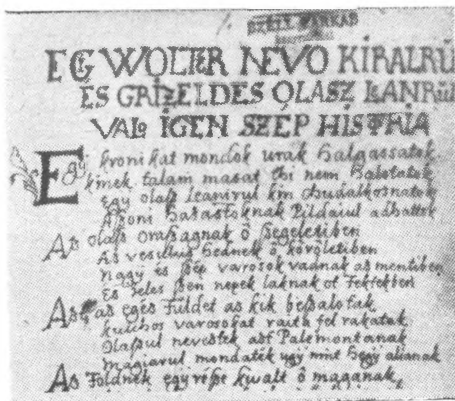 EGI WOLTER NEVO KIRALRU
ES GRIZELDES OLASZ LEANRUL
VALO IGEN SZEP HISTRIA
Egi kronikat mondok urak halgassatok
kinek talam masat thi nem halotatok
Egy olasz leanirul kin chudalkoznatok
Aszoni hazastoknak Pildaiul adhattok
Az olasz orszagnak ő szegeletiben
As vesullus hednek ő kőrőletiben
nagy es szep varosok vadnak as mentiben
Es jeles szep nepek laknak ot
As földet as kik
kulchos varosokat raita fel rakatak
Olaszul neveztek azt Palemontanak
magiarul mondatek ugy mint hegy alianak
As Földnek egy része kivalt ő maganak